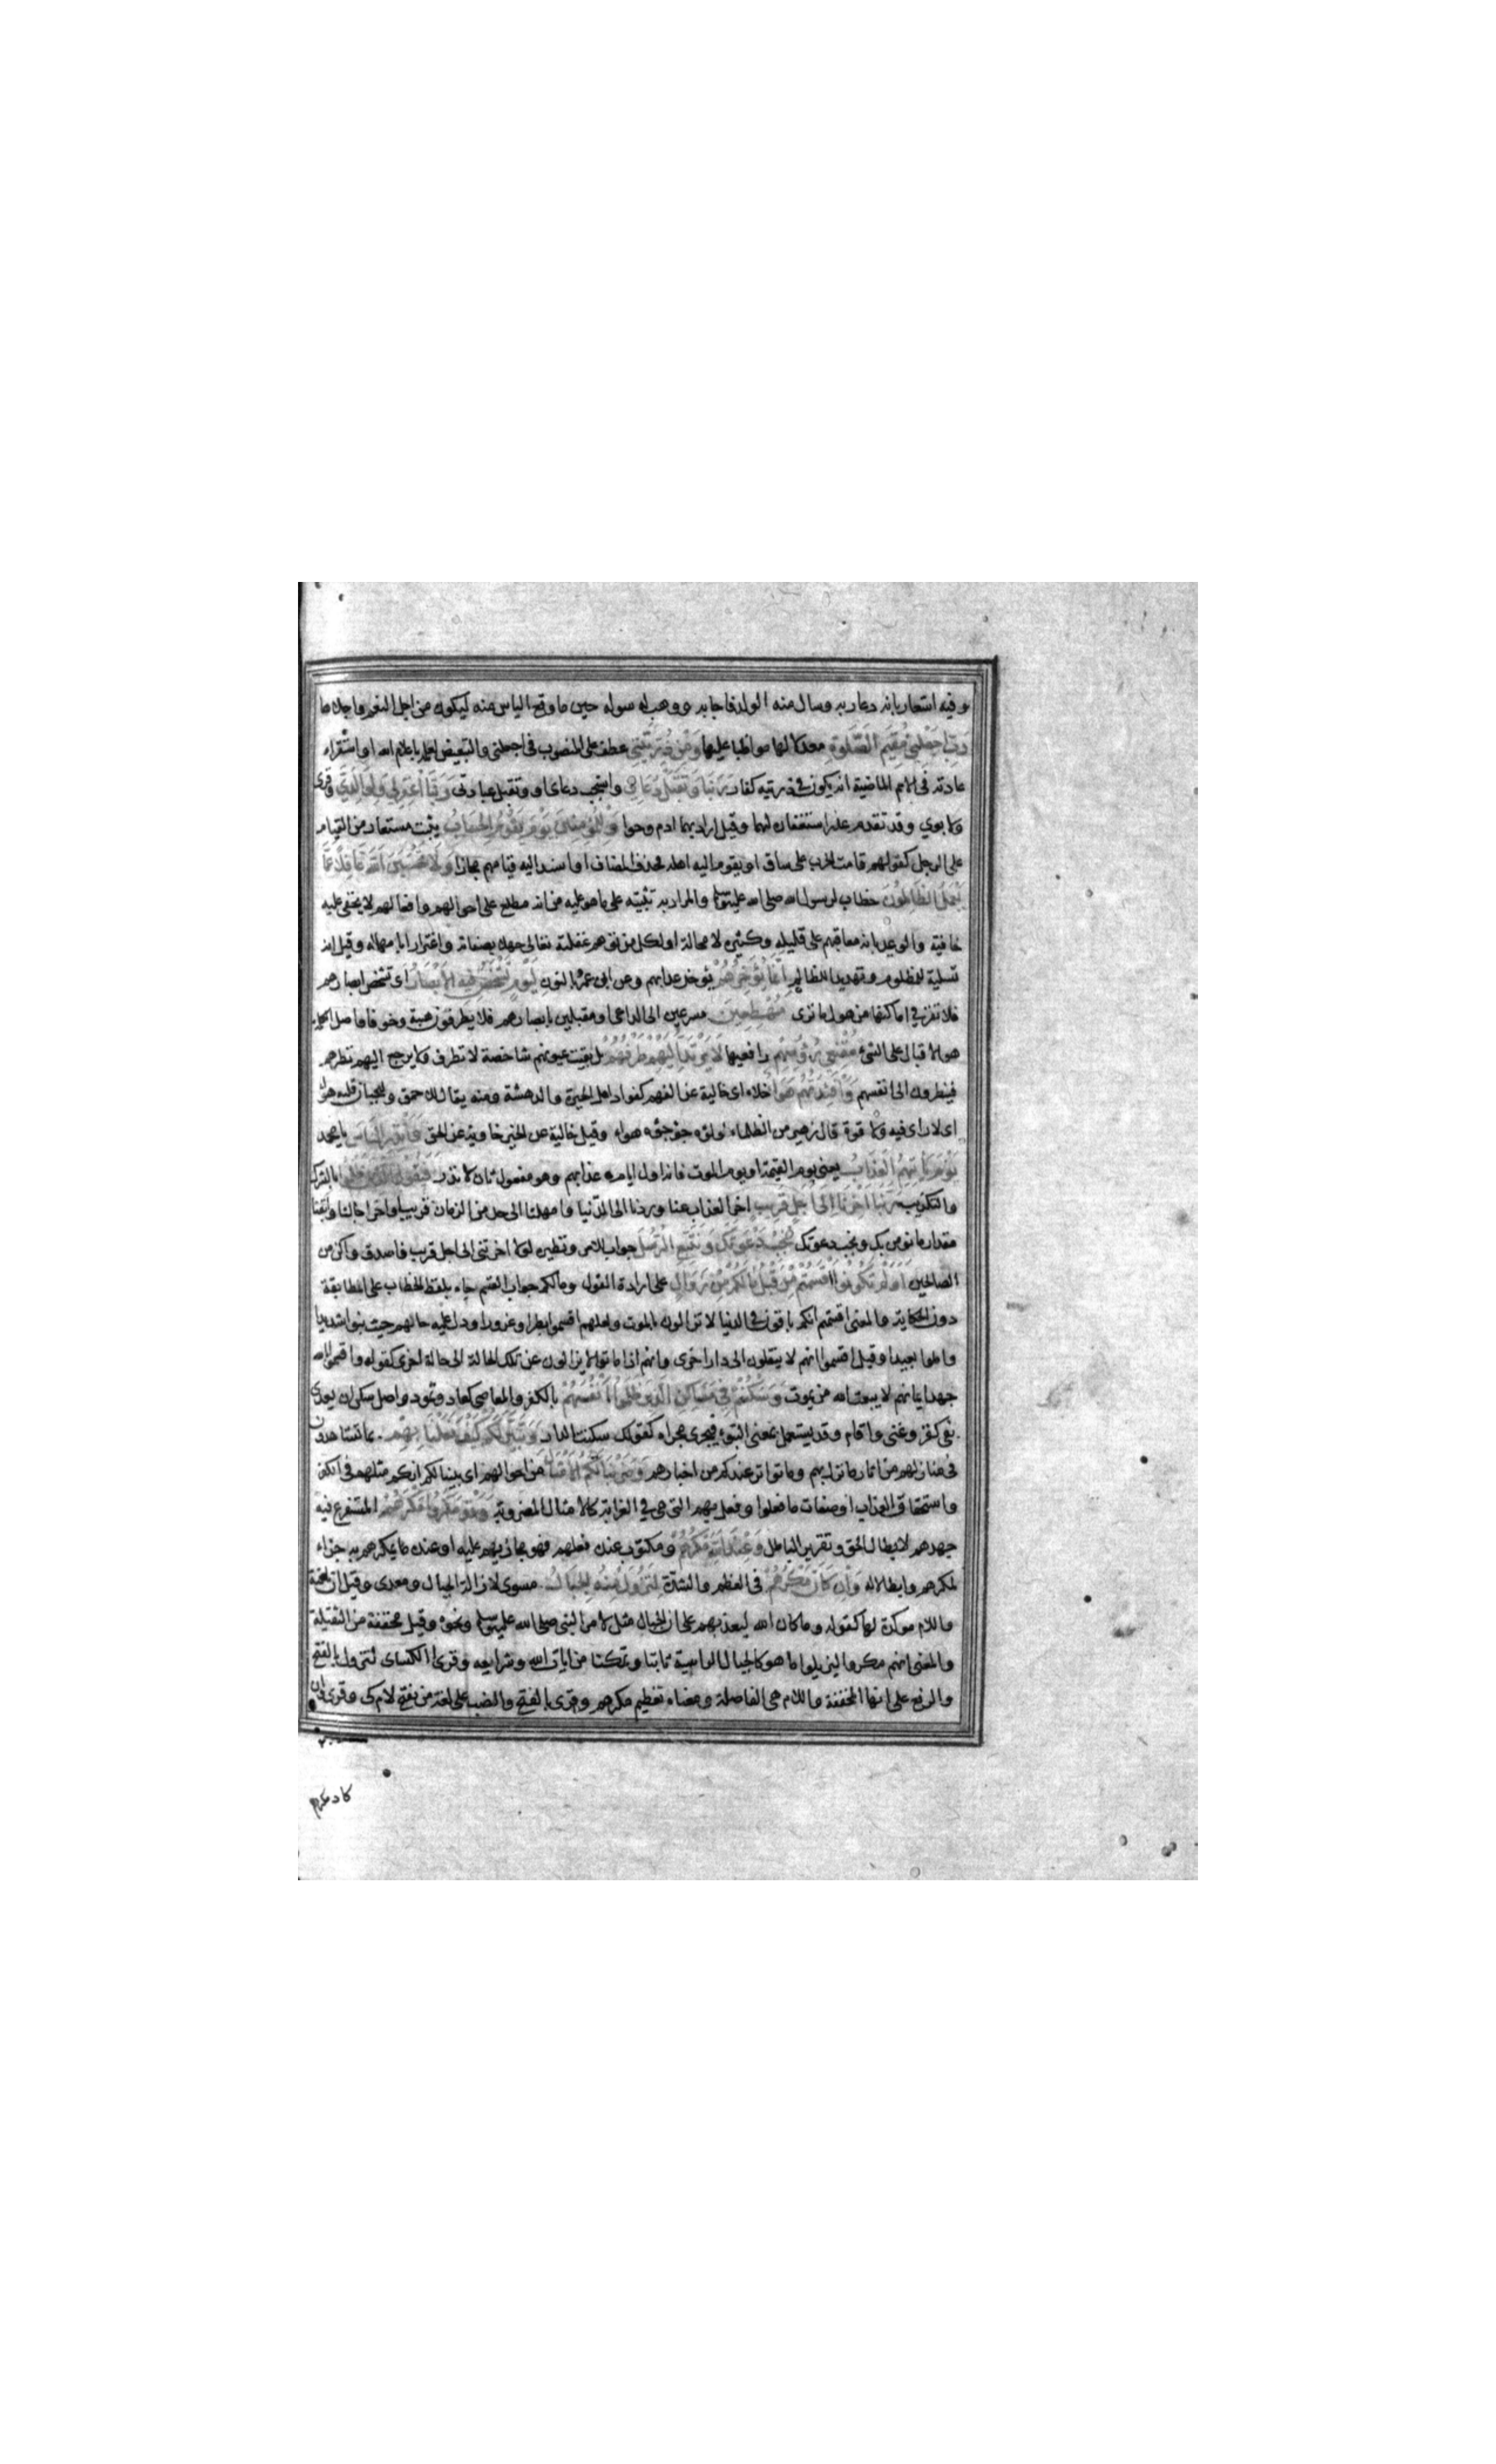 وفيه اشعار بانه دعا ربه وسال منه الولد فاجابه ووهب له سوله حين ما وقع الياس منه ليكون من اجل النعم واجلاها
رَبِّ اجْعَلْنِي مُقِيمَ الصَّلٰوةِ معدلا لها مواظبا عليها وَمِنْ ذُرِّيَّتِي عطف على المنصوب فى اجعلنى والتبعيض لعلمه باعلام الله او استقراء
عادته فى الامم الماضية انه يكون فى ذريته كفار رَبَّنَا وَتَقَبَّلْ دُعَاءِ واستجب دعاى او وتقبل عبادتى رَبَّنَا اغْفِرْ لِي وَلِوَالِدَيَّ وقرى
ولابوي وقد تقدم عذر استغفاره لهما وقيل اراد بهما ادم وحوا وَلِلْمُؤْمِنِينَ يَوْمَ يَقُومُ الْحِسَابُ يثبت مستعار من القيام
على الرجل كقولهم قامت الحرب على ساق او يقوم اليه اهله فحذف المضاف او اسند اليه قيامهم مجازا وَلَا تَحْسَبَنَّ اللّٰهَ غَافِلًا عَمَّا
يَعْمَلُ الظَّالِمُونَ خطاب لرسول الله صلى الله عليه وسلم والمراد به تثبيته على ما هو عليه من انه مطلع على احوالهم وافعالهم لا يخفى عليه
خافية والوعيد بانه معاقبهم على قليله وكثيره لا محالة او لكل من توهم غفلته تعالى جهلا بصفاته واغترارا بامهاله وقيل انه
تسلية للمظلوم وتهديد للظالم اِنَّمَا يُؤَخِّرُهُمْ يوخر عذابهم وعن ابى عمرو بالنون لِيَوْمٍ تَشْخَصُ فِيهِ الْاَبْصَارُ اى تشخص ابصارهم
فلا تقر فى اماكنها من هول ما ترى مُهْطِعِينَ مسرعين الى الداعى او مقبلين بابصارهم فلا يطرفون هيبة وخوفا واصل الكلمة
هو الاقبال على الشئ مُقْنِعِي رُؤُوسِهِمْ رافعيها لَا يَرْتَدُّ اِلَيْهِمْ طَرْفُهُمْ بل بقيت عيونهم شاخصة لا تطرف ولا يرجع اليهم نظرهم
فينظرون الى انفسهم وَاَفْئِدَتُهُمْ هَوَاءٌ خلاء اى خالية عن الفهم كفوا د اهل الحيرة والدهشة ومنه يقال للاحمق وللجبان قلبه هواء
اى لا راى فيه ولا قوة قال زهير من الظلمان جؤجؤه هواء وقيل خالية عن الخير خاوية عن الحق وَاَنْذِرِ النَّاسَ يا محمد
يَوْمَ يَاْتِيهِمُ الْعَذَابُ يعنى يوم القيمة او يوم الموت فانه اول ايام عذابهم وهو مفعول ثان لانذر فَيَقُولُ الَّذِينَ ظَلَمُوا بالشرك
والتكذيب رَبَّنَا اَخِّرْنَا اِلٰى اَجَلٍ قَرِيبٍ اخر العذاب عنا وردنا الى الدنيا وامهلنا الى حد من الزمان قريب او اخر اجالنا وابقنا
مقدار ما نومن بك ونجيب دعوتك نُجِبْ دَعْوَتَكَ وَنَتَّبِعِ الرُّسُلَ جواب للامر ونظيره لولا اخرتنى الى اجل قريب فاصدق واكن من
الصالحين اَوَلَمْ تَكُونُوا اَقْسَمْتُمْ مِنْ قَبْلُ مَا لَكُمْ مِنْ زَوَالٍ على ارادة القول ومالكم جواب القسم جاء بلفظ الخطاب على المطابقة
دون الحكاية والمعنى اقسمتم انكم باقون فى الدنيا لا تزالون بالموت ولعلهم اقسموا بطرا وغرورا ودل عليه حالهم حيث بنوا شديدا
واملوا بعيدا وقيل اقسموا انهم لا ينتقلون الى دار اخرى وانهم اذا ماتوا لا يزالون عن تلك الحالة الى حالة اخرى كقوله واقسموا بالله
جهد ايمانهم لا يبعث الله من يموت وَسَكَنْتُمْ فِي مَسَاكِنِ الَّذِينَ ظَلَمُوا اَنْفُسَهُمْ بالكفر والمعاصى كعاد وثمود واصل سكن ان يعدى
بفى كقر وغنى واقام وقد يستعمل بمعنى التبوء فيجرى مجراه كقولك سكنت الدار وَتَبَيَّنَ لَكُمْ كَيْفَ فَعَلْنَا بِهِمْ بما تشاهدون
فى منازلهم من اثار ما نزل بهم وما تواتر عندكم من اخبارهم وَضَرَبْنَا لَكُمُ الْاَمْثَالَ من احوالهم اى بينا لكم انكم مثلهم فى الكفر
واستحقاق العذاب او صفات ما فعلوا وفعل بهم التى هى فى الغرابة كالامثال المضروبة وَقَدْ مَكَرُوا مَكْرَهُمْ المستفرغ فيه
جهدهم لابطال الحق وتقرير الباطل وَعِنْدَ اللّٰهِ مَكْرُهُمْ ومكتوب عنده فعلهم فهو مجازيهم عليه او عنده ما يمكرهم به جزاء
لمكرهم وابطالا له وَاِنْ كَانَ مَكْرُهُمْ فى العظم والشدة لِتَزُولَ مِنْهُ الْجِبَالُ مسوى لازالة الجبال ومعدى وقيل ان نافية
واللام موكدة لها كقوله وما كان الله ليعذبهم على ان الجبال مثل لامر النبى صلى الله عليه وسلم ونحوه وقيل مخففة من الثقيلة
والمعنى انهم مكروا ليزيلوا ما هو كالجبال الراسية ثباتا وتمكنا من ايات الله وشرايعه وقرى الكساى لتزول بالفتح
والرفع على انها المخففة واللام هى الفاصلة ومعناه تعظيم مكرهم وقرى بالفتح والنصب على لغة من يفتح لام كى وقرى وان
كاد مكرهم